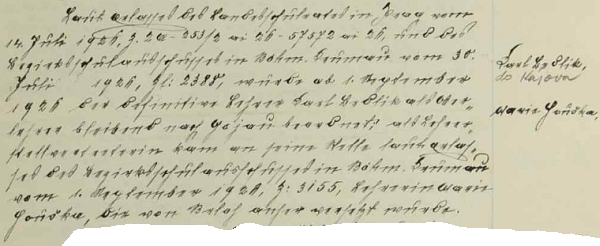 Laut Erlasses des Landesschulrates in Prag vom
14. Juli 1926, Z. 2a - 253/2 ai 26 - 57572 ai 26, und des
Bezirksschulausschusses in Böhm. Krumau vom 30.
Juli 1926, Zl: 2385, wurde ab 1. September
1926 der definitive Lehrer Karl Sedlik als Ober-
lehrer bleibend nach Gojau beordnet; als Lehrer-
stellvertreterin kam an seine Stelle laut Erlas-
ses des Bezirksschulausschusses in Böhm. Krumau
vom 1. September 1926, Z: 3155, Lehrerin Marie
Houska, die von anher versetzt wurde.
Karl Sedlik,
do Kájova
Marie Houska,